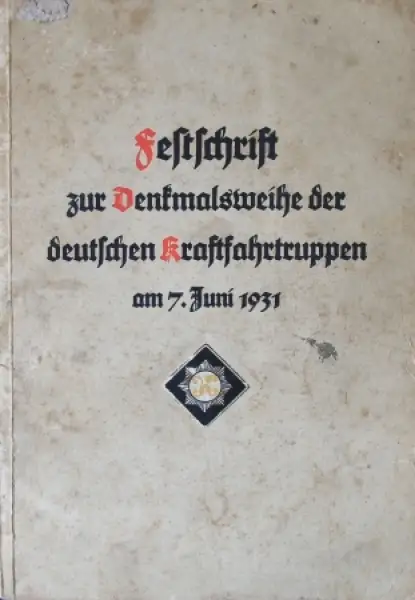 Festschrift
zur Denkmalsweihe der
deutschen Kraftfahrtruppen
am 7. Juni 1931